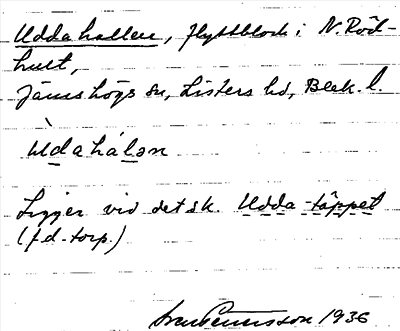 Uddahallen, flyttblock i N. Röd-
hult,
Jämshögs sn, Listers hd, Blek. l.
ùdahálən
Ligger vid det sk. Udda-täppet
(f.d. torp.)
1936